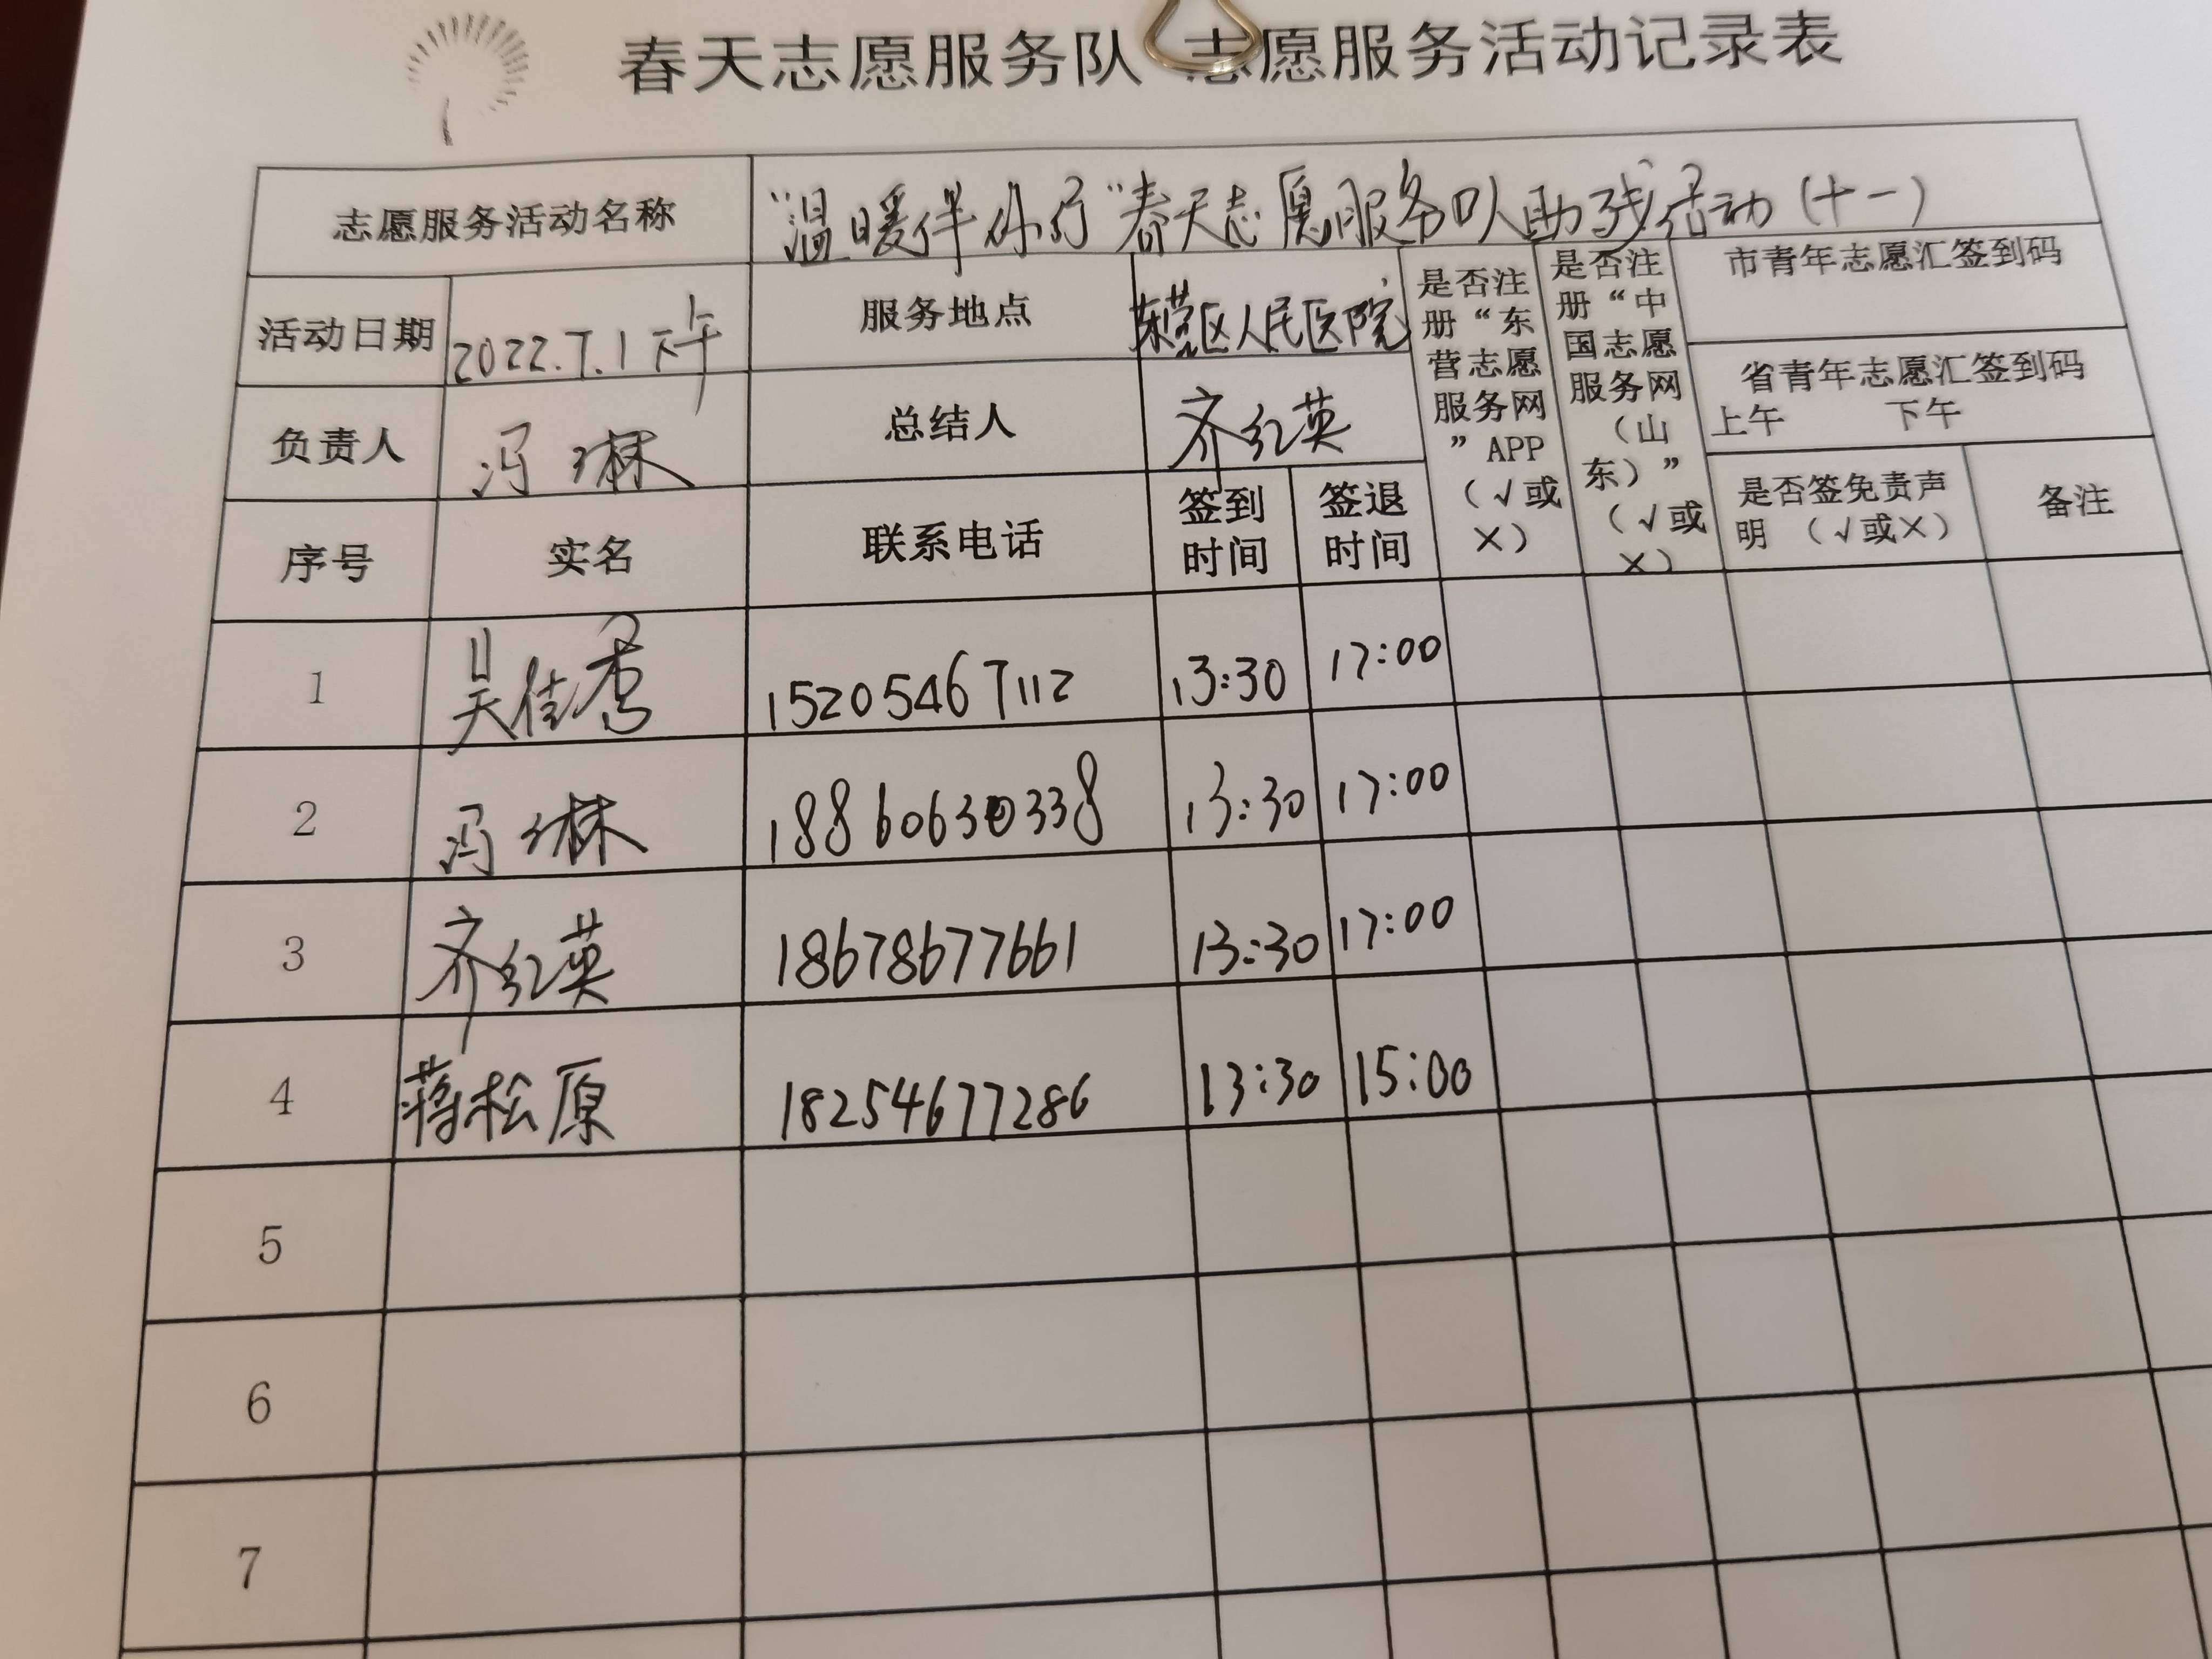 春天志愿服务队 志愿服务活动记录表
志愿服务活动名称 “温暖伴你行”春天志愿服务队助残活动(十一)
活动日期 2022.7.1下午 服务地点 东营区人民医院
是否注册“东营志愿服务网”APP（√或×）
是否注册“中国志愿服务网（山东）”（√或×）
市青年志愿汇签到码
省青年志愿汇签到码
上午 下午
负责人 冯琳 总结人 齐红英
序号 实名 联系电话 签到时间 签退时间 是否签免责声明 （√或×） 备注
1 吴佳秀 15205467112 13:30 17:00
2 冯琳 18860630338 13:30 17:00
3 齐红英 18678677661 13:30 17:00
4 蒋松原 18254677286 13:30 15:00
5
6
7